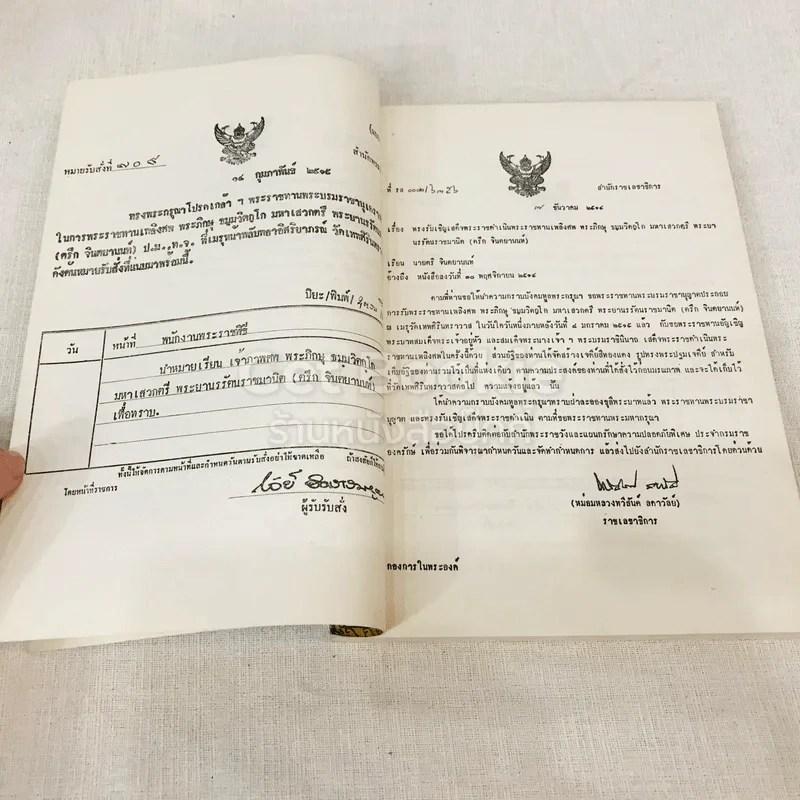 หมายรับสั่งที่ ๗๐๙
๑๔ กุมภาพันธ์ ๒๕๑๕
ทรงพระกรุณาโปรดเกล้า ฯ พระราชทานพระบรมราชานุเคราะห์
ในการพระราชทานเพลิงศพ พระภิกษุ ขมฺมวิตกฺโก มหาเสวกตรี พระยานรรัตน
(ตรึก จินตยานนท์) ป.ม.,ท.จ. ที่เมรุหน้าพลับพลาอิศริยาภรณ์ วัดเทพศิรินทรา
ดังตนหมายรับสั่งที่แนบมาพร้อมนี้.
ปิยะ/พิมพ์/
วัน
หน้าที่ พนักงานพระราชพิธี
นำหมายเรียน เจ้าภาพศพ พระภิกษุ ธมฺมวิตกฺโก
มหาเสวกตรี พระยานรรัตนราชมานิต (ตรึก จินต์ยานนท์)
เพื่อทราบ.
ทั้งนี้ให้จัดการตามหน้าที่และกำหนดวันตามรับสั่งอย่าให้ขาดเหลือ ถ้าสงสัยก็ให้
โดยหน้าที่ราชการ
ผู้รับรับสั่ง
ที่ รล
สำนักราชเลขาธิการ
๗ ธันวาคม ๒๕๑๔
เรื่อง ทรงรับเชิญเสด็จพระราชดำเนินพระราชทานเพลิงศพ พระภิกษุ ธมฺมวิตกฺโก มหาเสวกตรี พระยา
นรรัตนราชมานิต (ตรึก จินตยานนท์)
เรียน นายตริ จินตยานนท์
อ้างถึง หนังสือลงวันที่ ๓๐ พฤศจิกายน ๒๕๑๔
ตามที่ท่านขอให้นำความกราบบังคมทูลพระกรุณา ขอพระราชทานพระบรมราชานุญาตประกอบ
การรับพระราชทานเพลิงศพ พระภิกษุ ธมฺมวิตกฺโก มหาเสวกตรี พระยานรรัตนราชมานิต (ตรึก จินตยานนท์)
ณ เมรุวัดเทพศิรินทราวาส ในวันใดวันหนึ่งภายหลังวันที่ ๔ มกราคม ๒๕๑๕ แล้ว กับขอพระราชทานอัญเชิญ
พระบาทสมเด็จพระเจ้าอยู่หัว และสมเด็จพระนางเจ้า ฯ พระบรมราชินีนาถ เสด็จพระราชดำเนินพระ
ราชทานเพลิงศพในครั้งนี้ด้วย ส่วนอัฐิของท่านได้จัดสร้างฯ เจดีย์สีทองแดง รูปทรงพระปฐมเจดีย์ สำหรับ
เก็บอัฐิของท่านรวมไว้เป็นที่แห่งเดียว ตามความประสงค์ของท่านที่ได้สั่งไว้ก่อนมรณภาพ และจะได้เก็บไว้
ที่วัดเทพศิรินทราวาสต่อไป ความแจ้งอยู่แล้ว นั้น
ได้นำความกราบบังคมทูลพระกรุณาทราบฝ่าละอองธุลีพระบาทแล้ว พระราชทานพระบรมราชา
นุญาต และทรงรับเชิญเสด็จพระราชดำเนิน ตามที่ขอพระราชทานพระมหากรุณา
ขอได้โปรดติดต่อกับสำนักพระราชวังและแผนกรักษาความปลอดภัยพิเศษ ประจำกรมราช
องครักษ์ เพื่อร่วมกันพิจารณากำหนดวันและจัดทำกำหนดการ แล้วส่งไปยังสำนักราชเลขาธิการโดยด่วนด้วย
(หม่อมหลวงทวีสันต์ ลดาวัลย์)
ราชเลขาธิการ
กองการในพระองค์